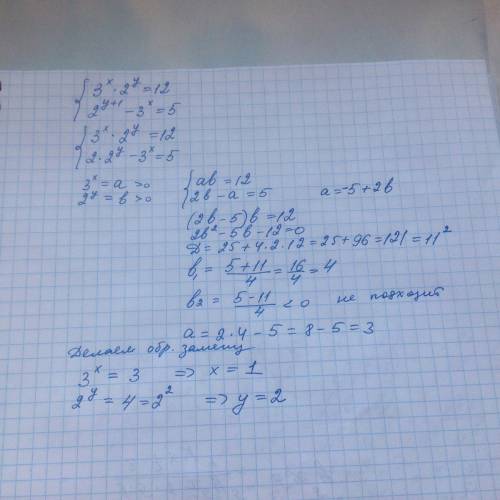 { 3ˣ · 2ʸ = 12
2ʸ⁺¹ − 3ˣ = 5
{ 3ˣ · 2ʸ = 12
2 · 2ʸ − 3ˣ = 5
3ˣ = a > 0
2ʸ = b > 0
{ ab = 12
2b − a = 5
a = −5 + 2b
(2b − 5)b = 12
2b² − 5b − 12 = 0
D = 25 + 4 · 2 · 12 = 25 + 96 = 121 = 11²
b₁ = (5 + 11)/4 = 16/4 = 4
b₂ = (5 − 11)/4 < 0 не подходит
a = 2 · 4 − 5 = 8 − 5 = 3
Делаем обр. замену
3ˣ = 3 => x = 1
2ʸ = 4 = 2² => y = 2